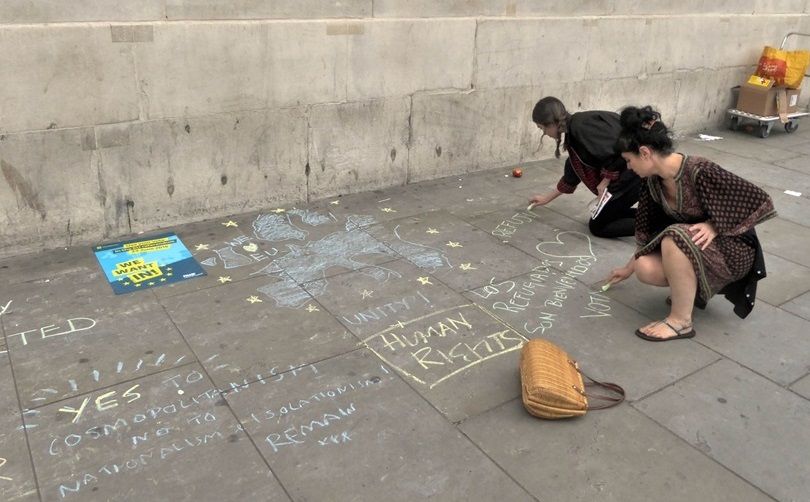 WE
WANT
IN!
UNITY!
HUMAN
RIGHTS
LOS
REFUGIADOS
SON BIENVENIDOS
VOTE
REFU
TED
YES TO
COSMOPOLITANISM!
NO TO
NATIONALISM & ISOLATIONISM!
REMAIN
xxx